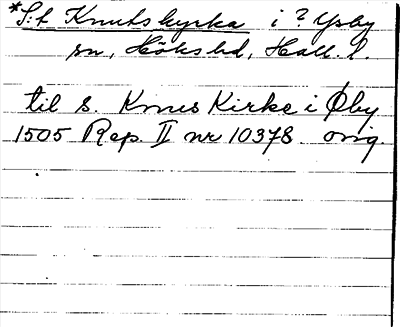 *S:t Knutskyrka i ? Ysby
sn, Höks hd, Hall. l.
til s. Knus Kirke i Øby
1505 Rep. II nr 10378 orig.